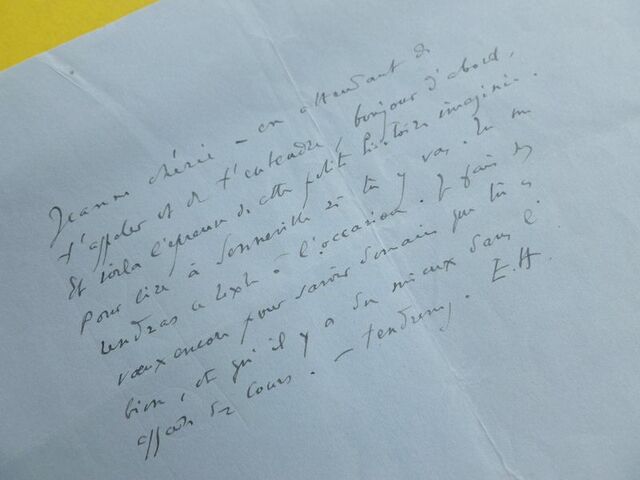 Jeanne chérie – en attendant de
t'appeler et de t'entendre, bonjour d'abord,
Et voilà l'épreuve de cette petite histoire imaginée.
Pour lire à Sonneville si tu y vas. Tu me
rendras ce texte à l'occasion. Je fais des
vœux encore pour savoir demain que tu as
bien, et qu'il y a du mieux dans l'
affaire de cours. – tendrement. E.H.